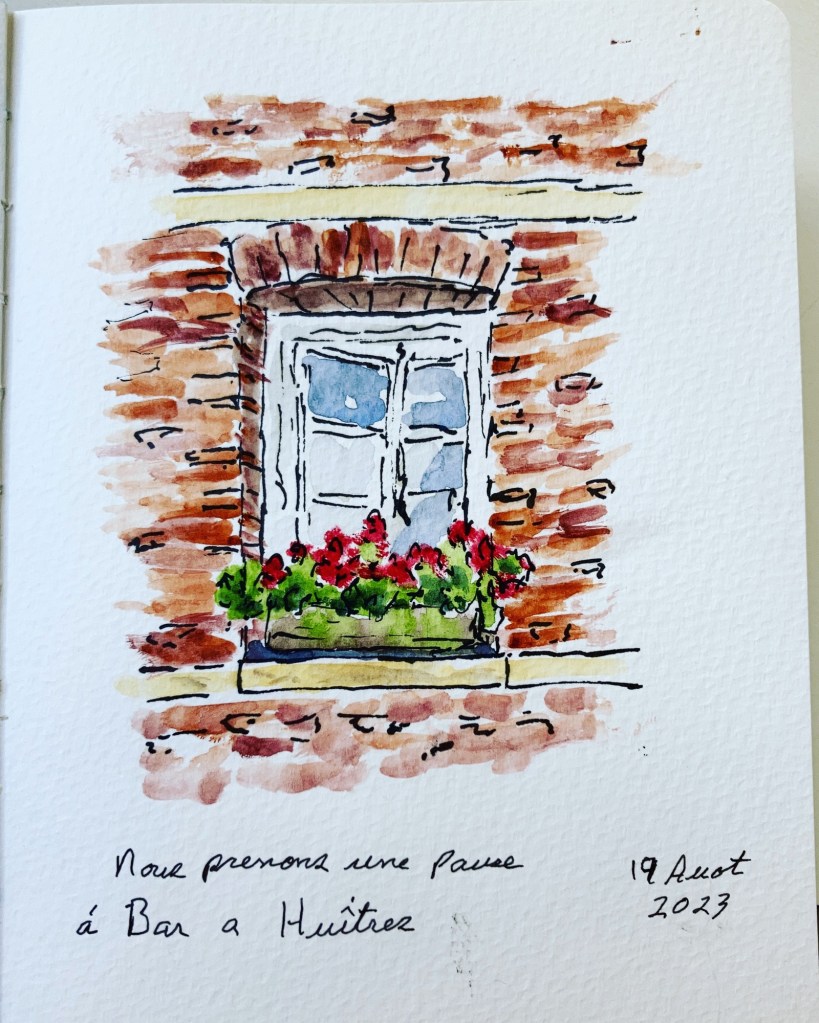 Nous prenons une pause
á Bar a Huîtres
19 Auot
2023